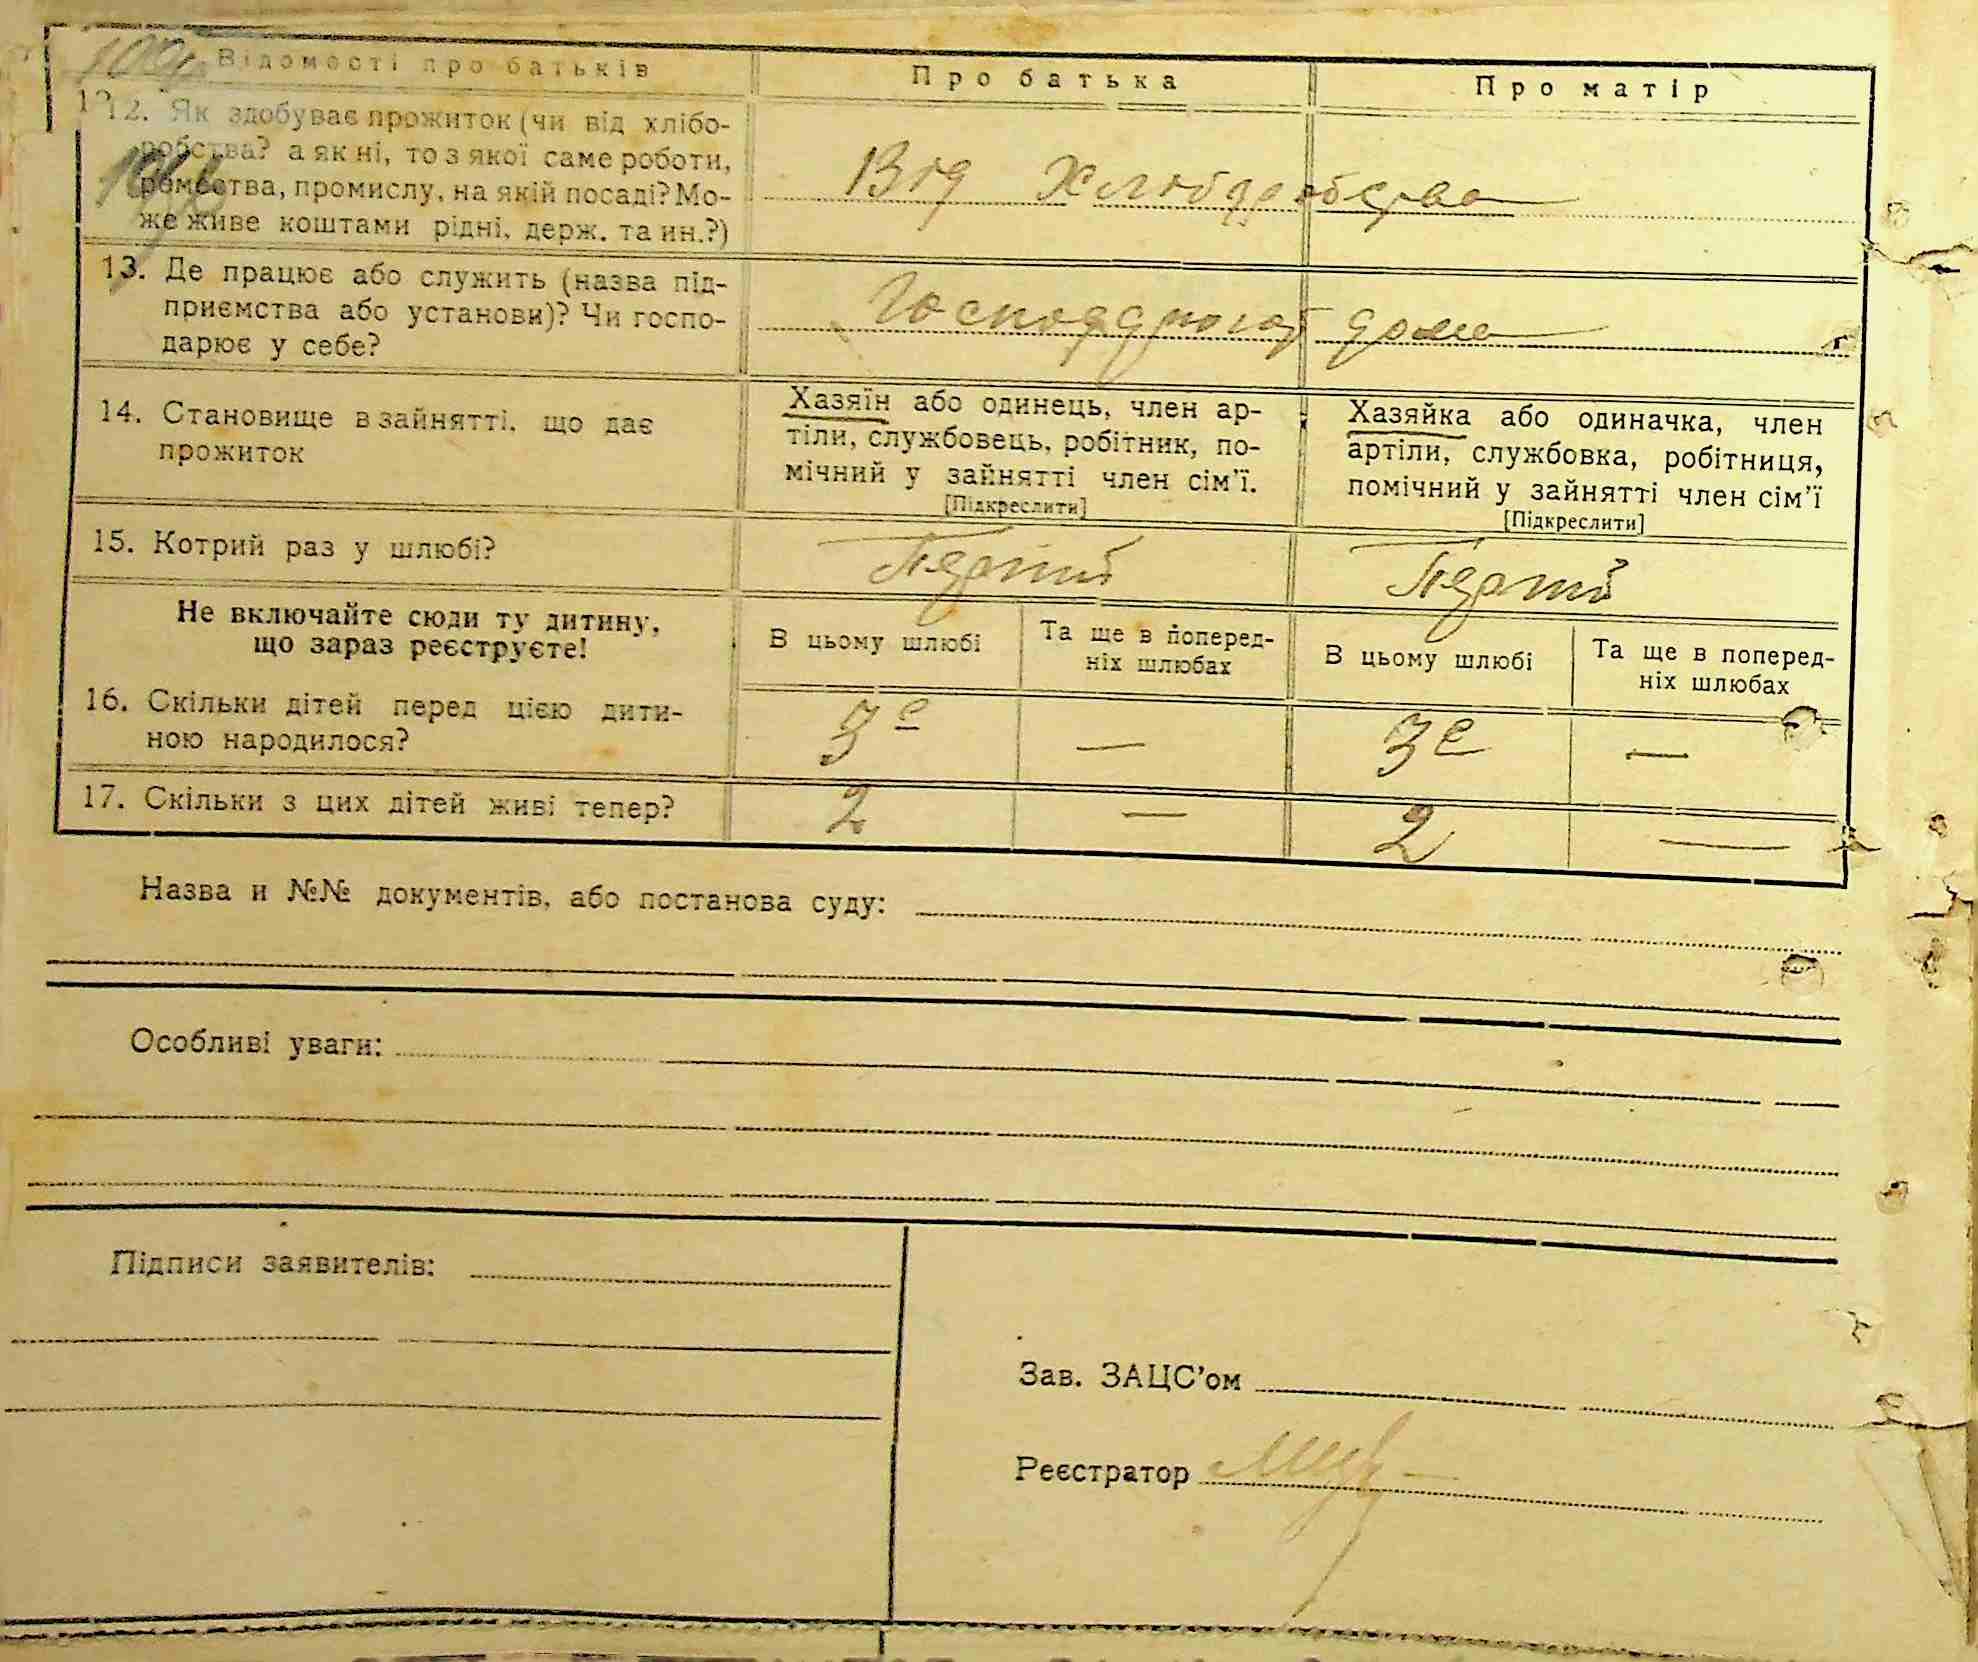 Відомості про батьків Про батька Про матір
12. Як здобуває прожиток (чи від хлібо-
робства? а як ні, то з якої саме роботи,
ремества, промислу, на якій посаді? Мо-
же живе коштами рідні, держ. та ин.?)
Від Хлібдробства
13. Де працює або служить (назва під-
приємства або установи)? Чи госпо-
дарює у себе?
дома
14. Становище в зайнятті, що дає
прожиток
Хазяїн або одинець, член ар-
тіли, службовець, робітник, по-
мічний у зайнятті член сім'ї.
[Підкреслити]
Хазяйка або одиначка, член
артіли, службовка, робітниця,
помічний у зайнятті член сім'ї
[Підкреслити]
15. Котрий раз у шлюбі?
Не включайте сюди ту дитину,
що зараз реєструєте!
В цьому шлюбі
Та ще в поперед-
ніх шлюбах
В цьому шлюбі
Та ще в поперед-
ніх шлюбах
16. Скільки дітей перед цією дити-
ною народилося?
3е — 3е —
17. Скільки з цих дітей живі тепер? 2 — 2 —
Назва и №№ документів, або постанова суду:
Особливі уваги:
Підписи заявителів:
Зав. ЗАЦС'ом
Реєстратор